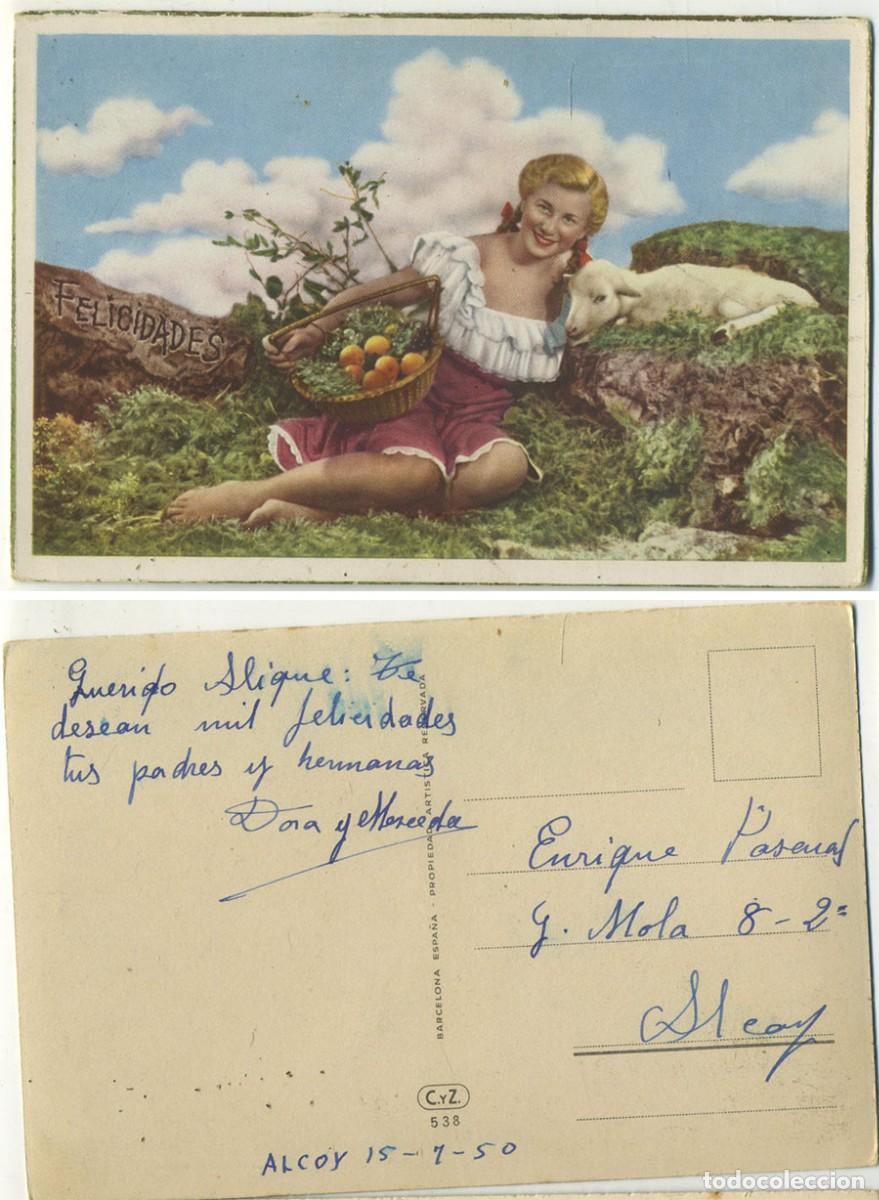 FELICIDADES
Querido Alique: Te
desean mil felicidades
tus padres y hermanas
Dora y Mercedes
BARCELONA ESPAÑA - PROPIEDAD ARTISTICA RESERVADA
Enrique
G. Mola 8-2º
Alcoy
C.Y Z.
538
ALCOY 15-7-50
todocoleccion